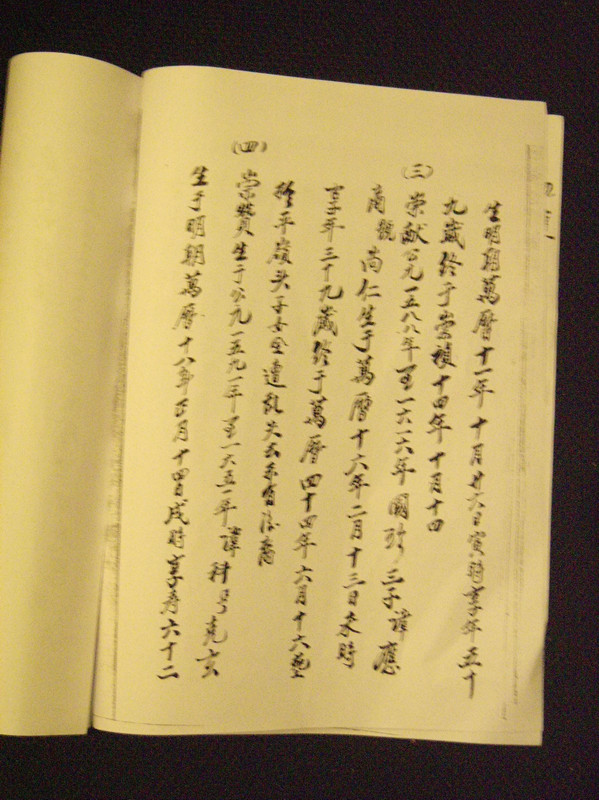 生明朝萬曆十一年十月廿六日寅時享年五十
九歲終于崇禎十四年十月十四
(三)
崇献公元一五八八年至一六一六年國珍三子諱應
商號尚仁生于萬曆十六年二月十三日未時
享年三十九歲終于萬曆四十四年六月十六塟
平嶺头子女全遭乱失去
(四)
崇贊生于公元一五九一年至一六五一年諱科号克玄
生于明朝萬曆十八年正月十四日戌時享寿六十二